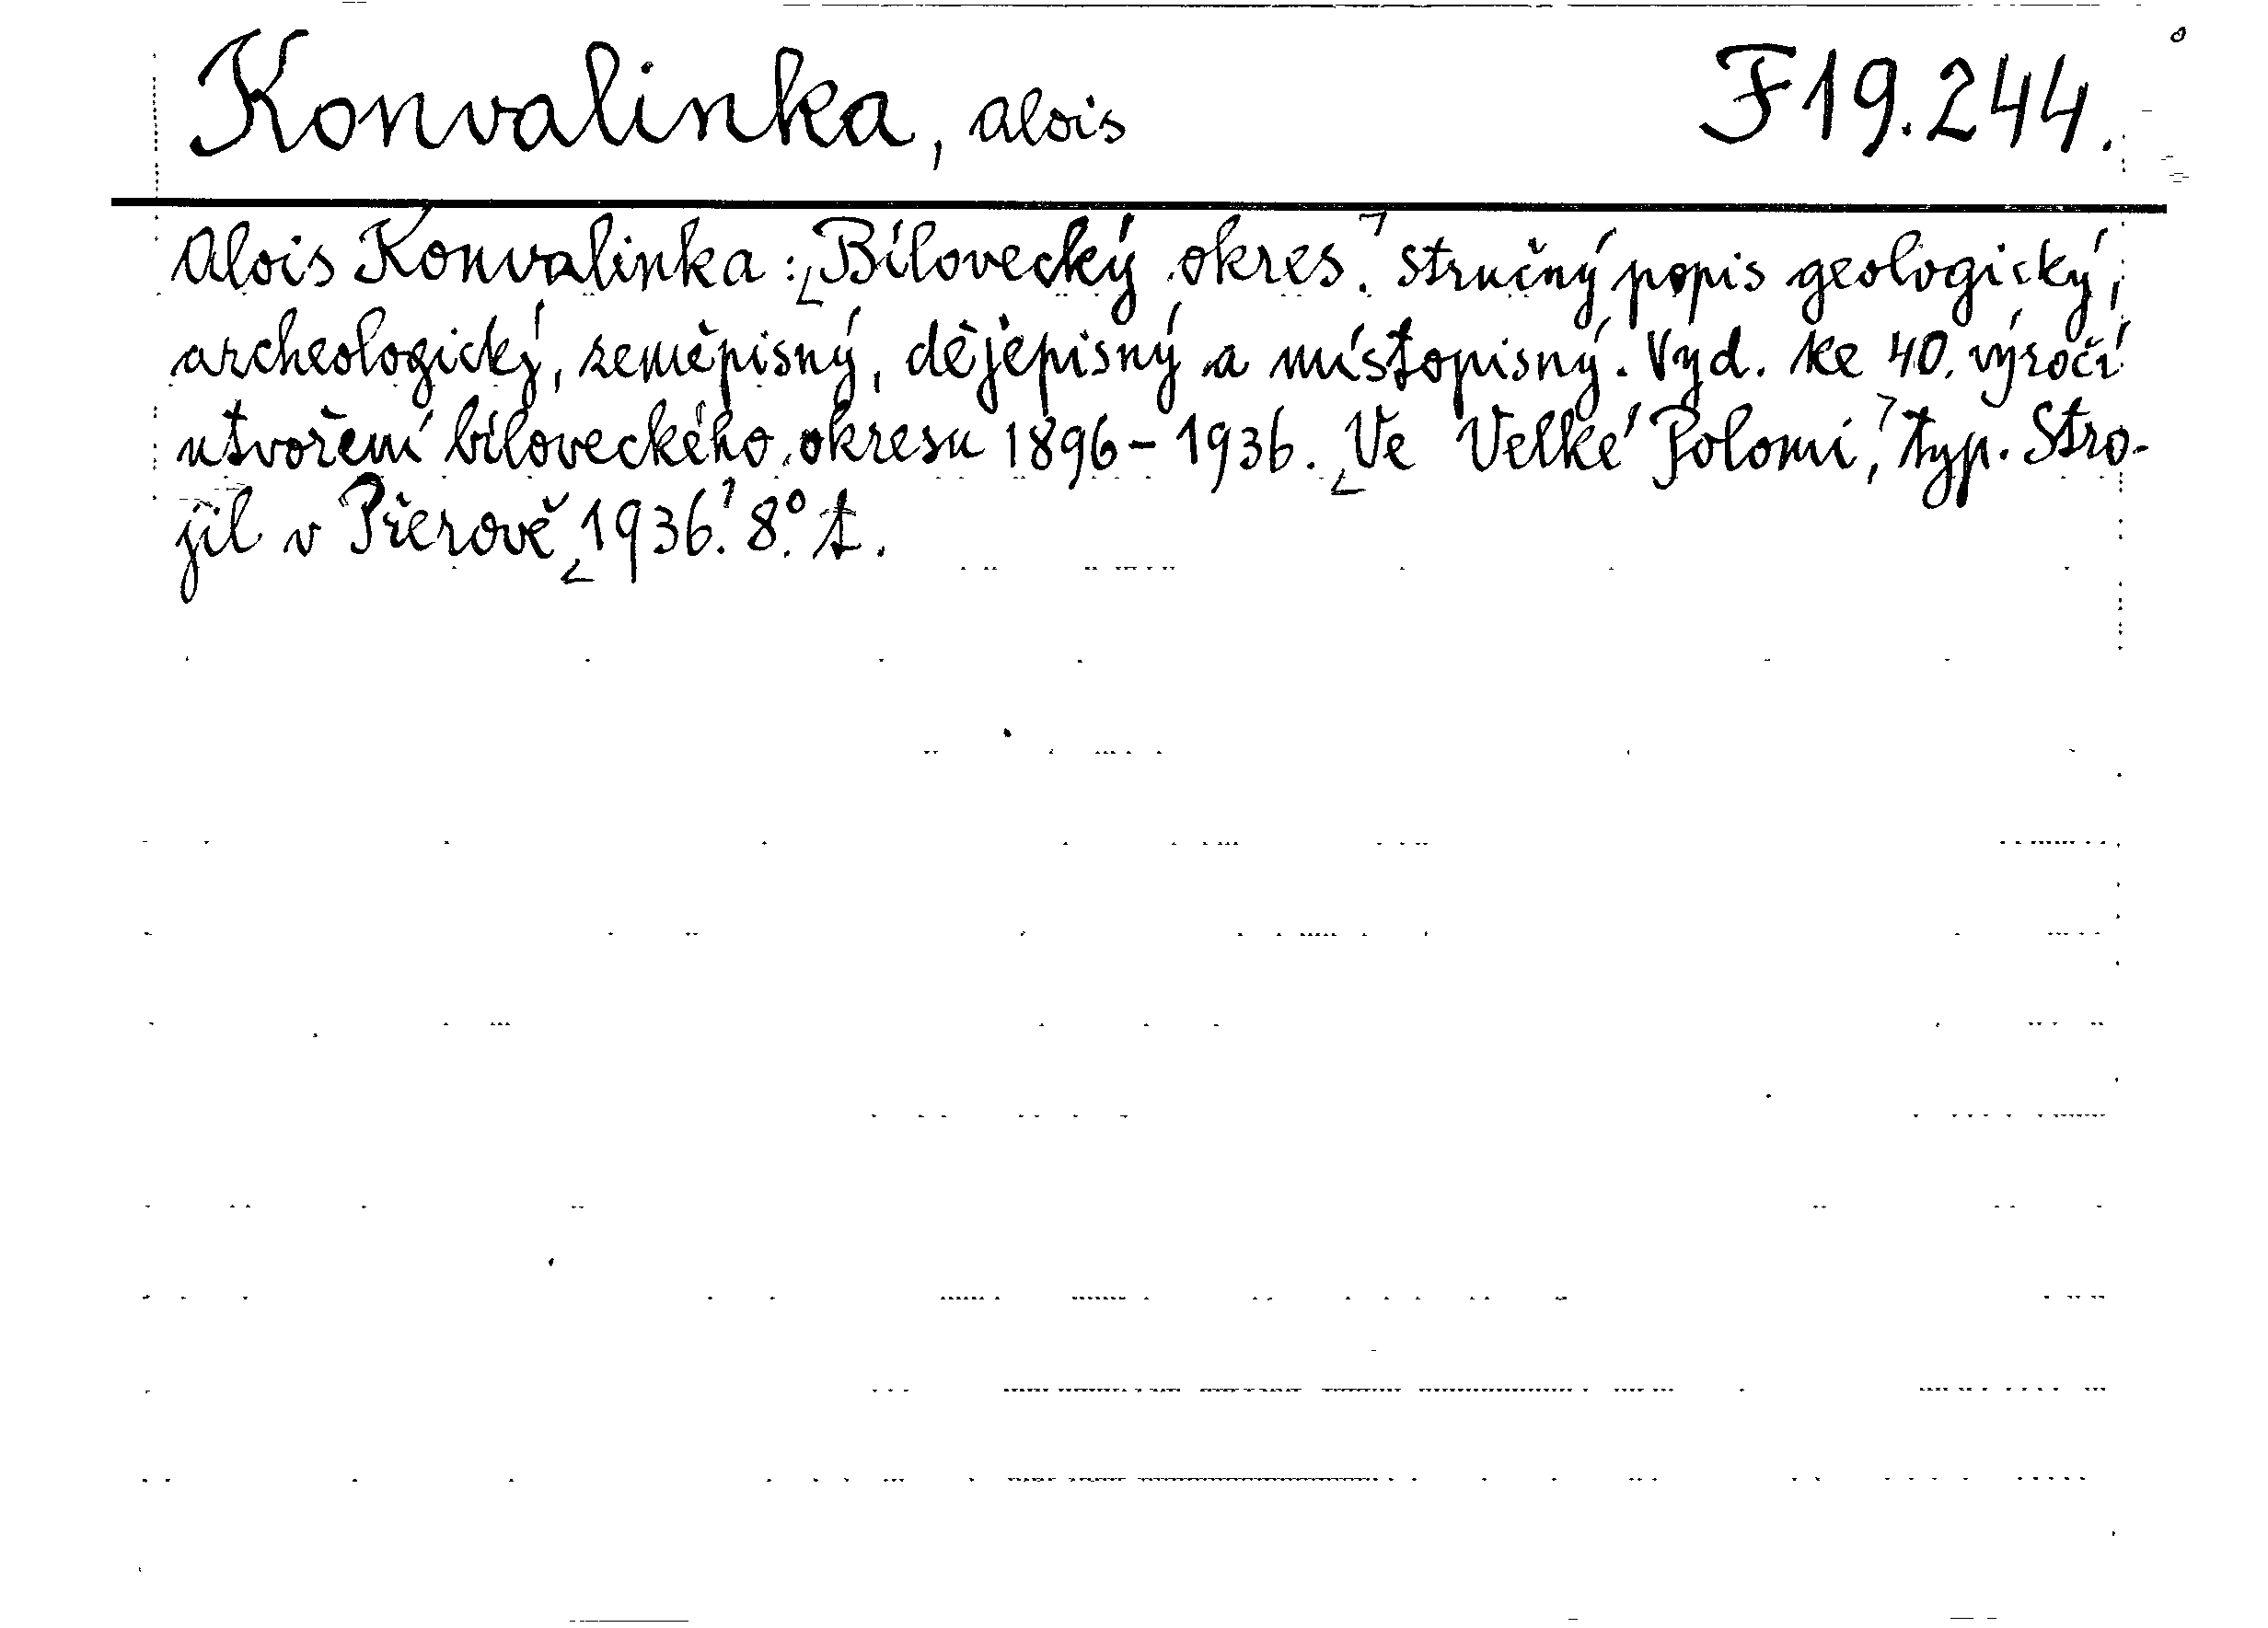 Konvalinka, Alois F 19.244.
Alois Konvalinka: ⌊Bílovecký okres.⌉ Stručný popis geologický,
archeologický, zeměpisný, dějepisný a místopisný. Vyd. ke 40. výročí
utvoření bíloveckého okresu 1896-1936. ⌊Ve Velké Polomi,⌉ typ. Stro-
jil v Přerově ⌊1936.⌉ 8°.